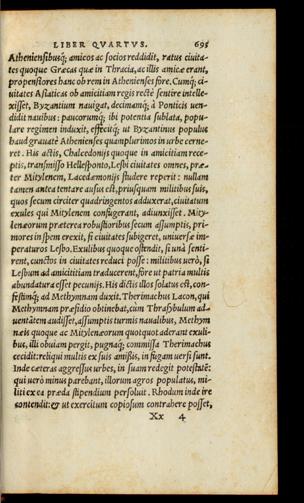 LIBER QVARTVS. 695
Atheniensibusq́; amicos ac socios reddidit, ratus ciuita-
tes quoque Græcas quæ in Thracia, ac illis amicæ erant,
propensiores hanc ob rem in Athenienses fore. Cumq́; ci-
uitates Asiaticas ob amicitiam regis rectè sentire intelle-
xisset, Byzantium nauigat, decimamq́; à Ponticis uen-
didit nauibus: paucorumq́; ibi potentia sublata, popu-
lare regimen induxit, effecitq́; ut Byzantinus populus
haud grauatè Athenienses quamplurimos in urbe cerne-
ret. His actis, Chalcedonijs quoque in amicitiam rece-
ptis, transmisso Hellesponto, Lesbi ciuitates omnes, præ-
ter Mitylenem, Lacedæmonijs studere reperit: nullam
tamen antea tentare ausus est, priusquam militibus suis,
quos secum circiter quadringentos adduxerat, ciuitatum
exules qui Mitylenem confugerant, adiunxisset. Mity-
lenæorum præterea robustioribus secum assumptis, pri-
mores in spem erexit, si ciuitates subigeret, uniuersæ im-
peraturos Lesbo. Exulibus quoque ostendit, si unà senti-
rent, cunctos in ciuitates reduci posse: militibus uerò, si
Lesbum ad amicititiam traducerent, fore ut patria multis
abundatura esset pecunijs. His dictis illos solatus est, con-
festimq́; ad Methymnam duxit. Therimachus Lacon, qui
Methymnam præsidio obtinebat, cum Thrasybulum ad-
uentātem audisset, assumptis turmis naualibus, Methym
næis quoque ac Mitylenæorum quotquot aderant exuli-
bus, illi obuiam pergit, pugnaq́; commissa Therimachus
cecidit: reliqui multis ex suis amissis, in fugam uersi sunt.
Inde cæteras aggressus urbes, in suam redegit potestatē:
qui uerò minus parebant, illorum agros populatus, mi-
liti ex ea præda stipendium persoluit. Rhodum inde ire
contendit: & ut exercitum copiosum contrahere posset,
Xx 4